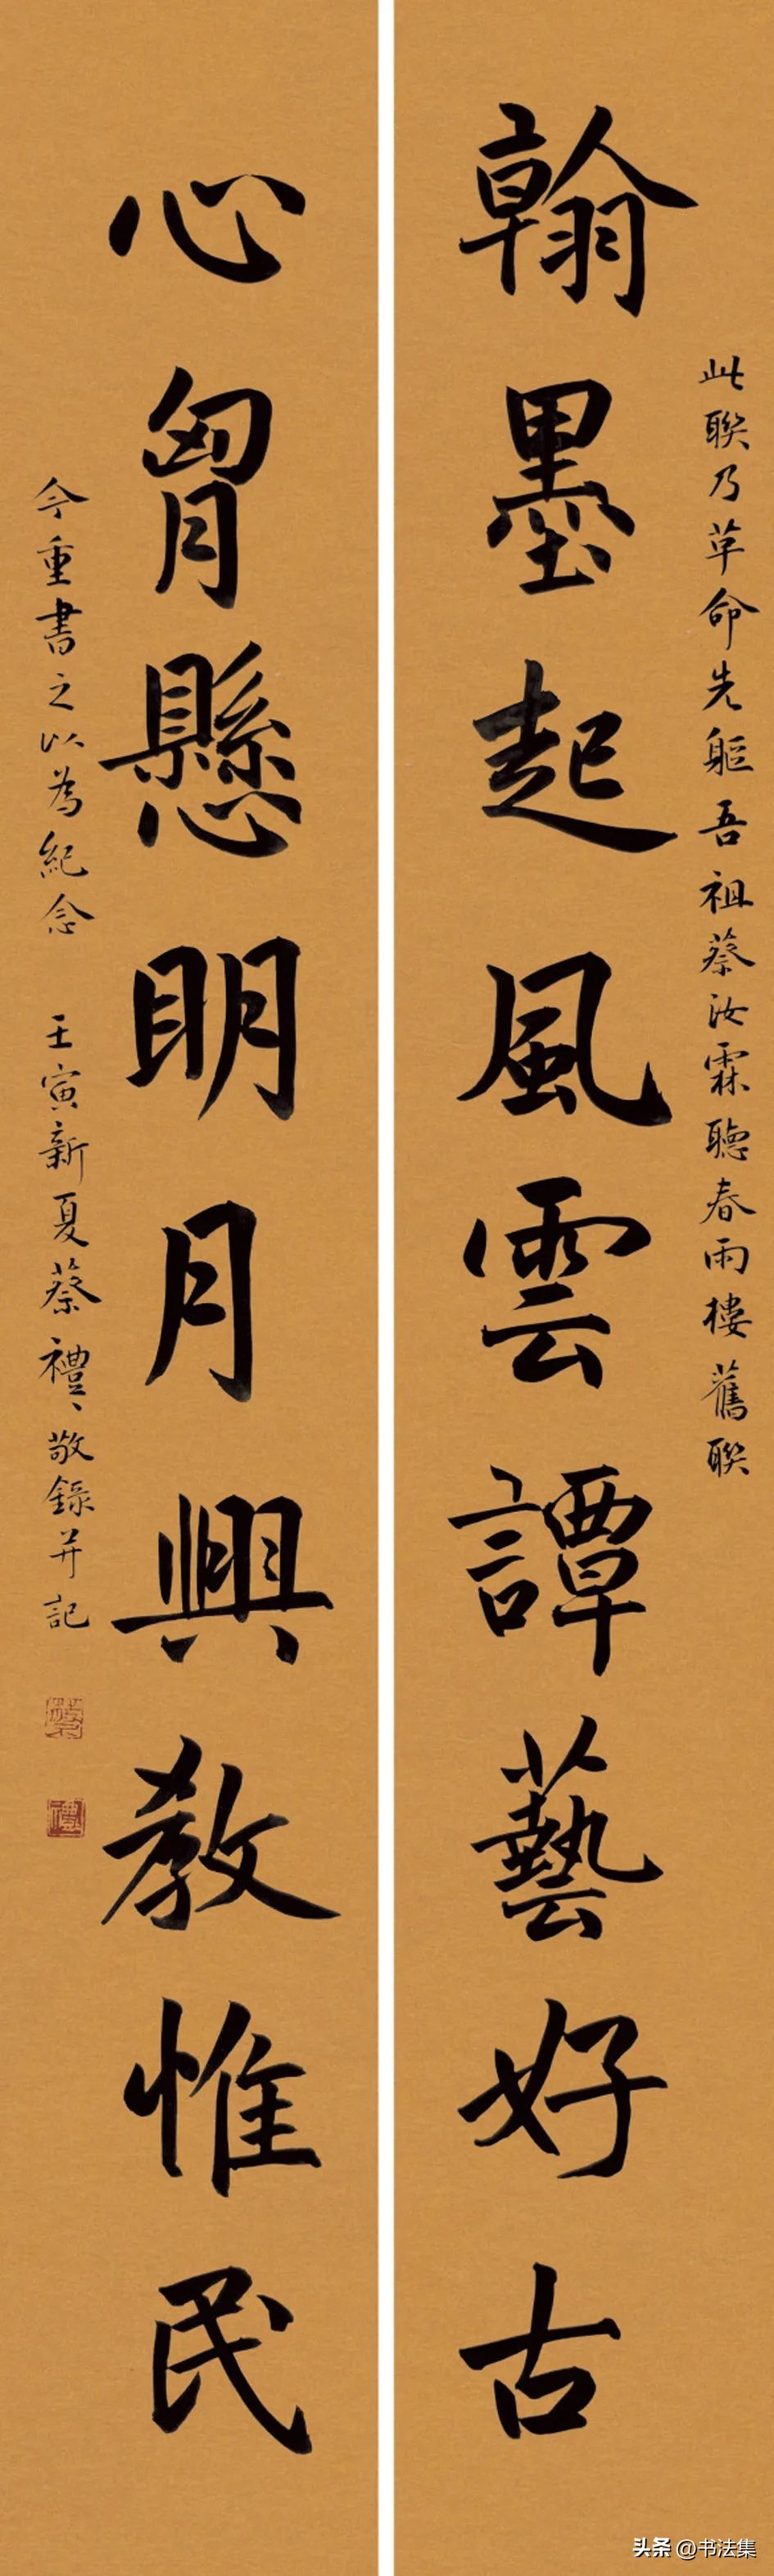 此聯乃革命先軀吾祖蔡汝霖聽春雨樓舊聯
翰墨起風雲譚藝好古
心胷懸明月興教惟民
今重書之以為紀念 壬寅新夏蔡禮、敬錄并記
头条 @书法集